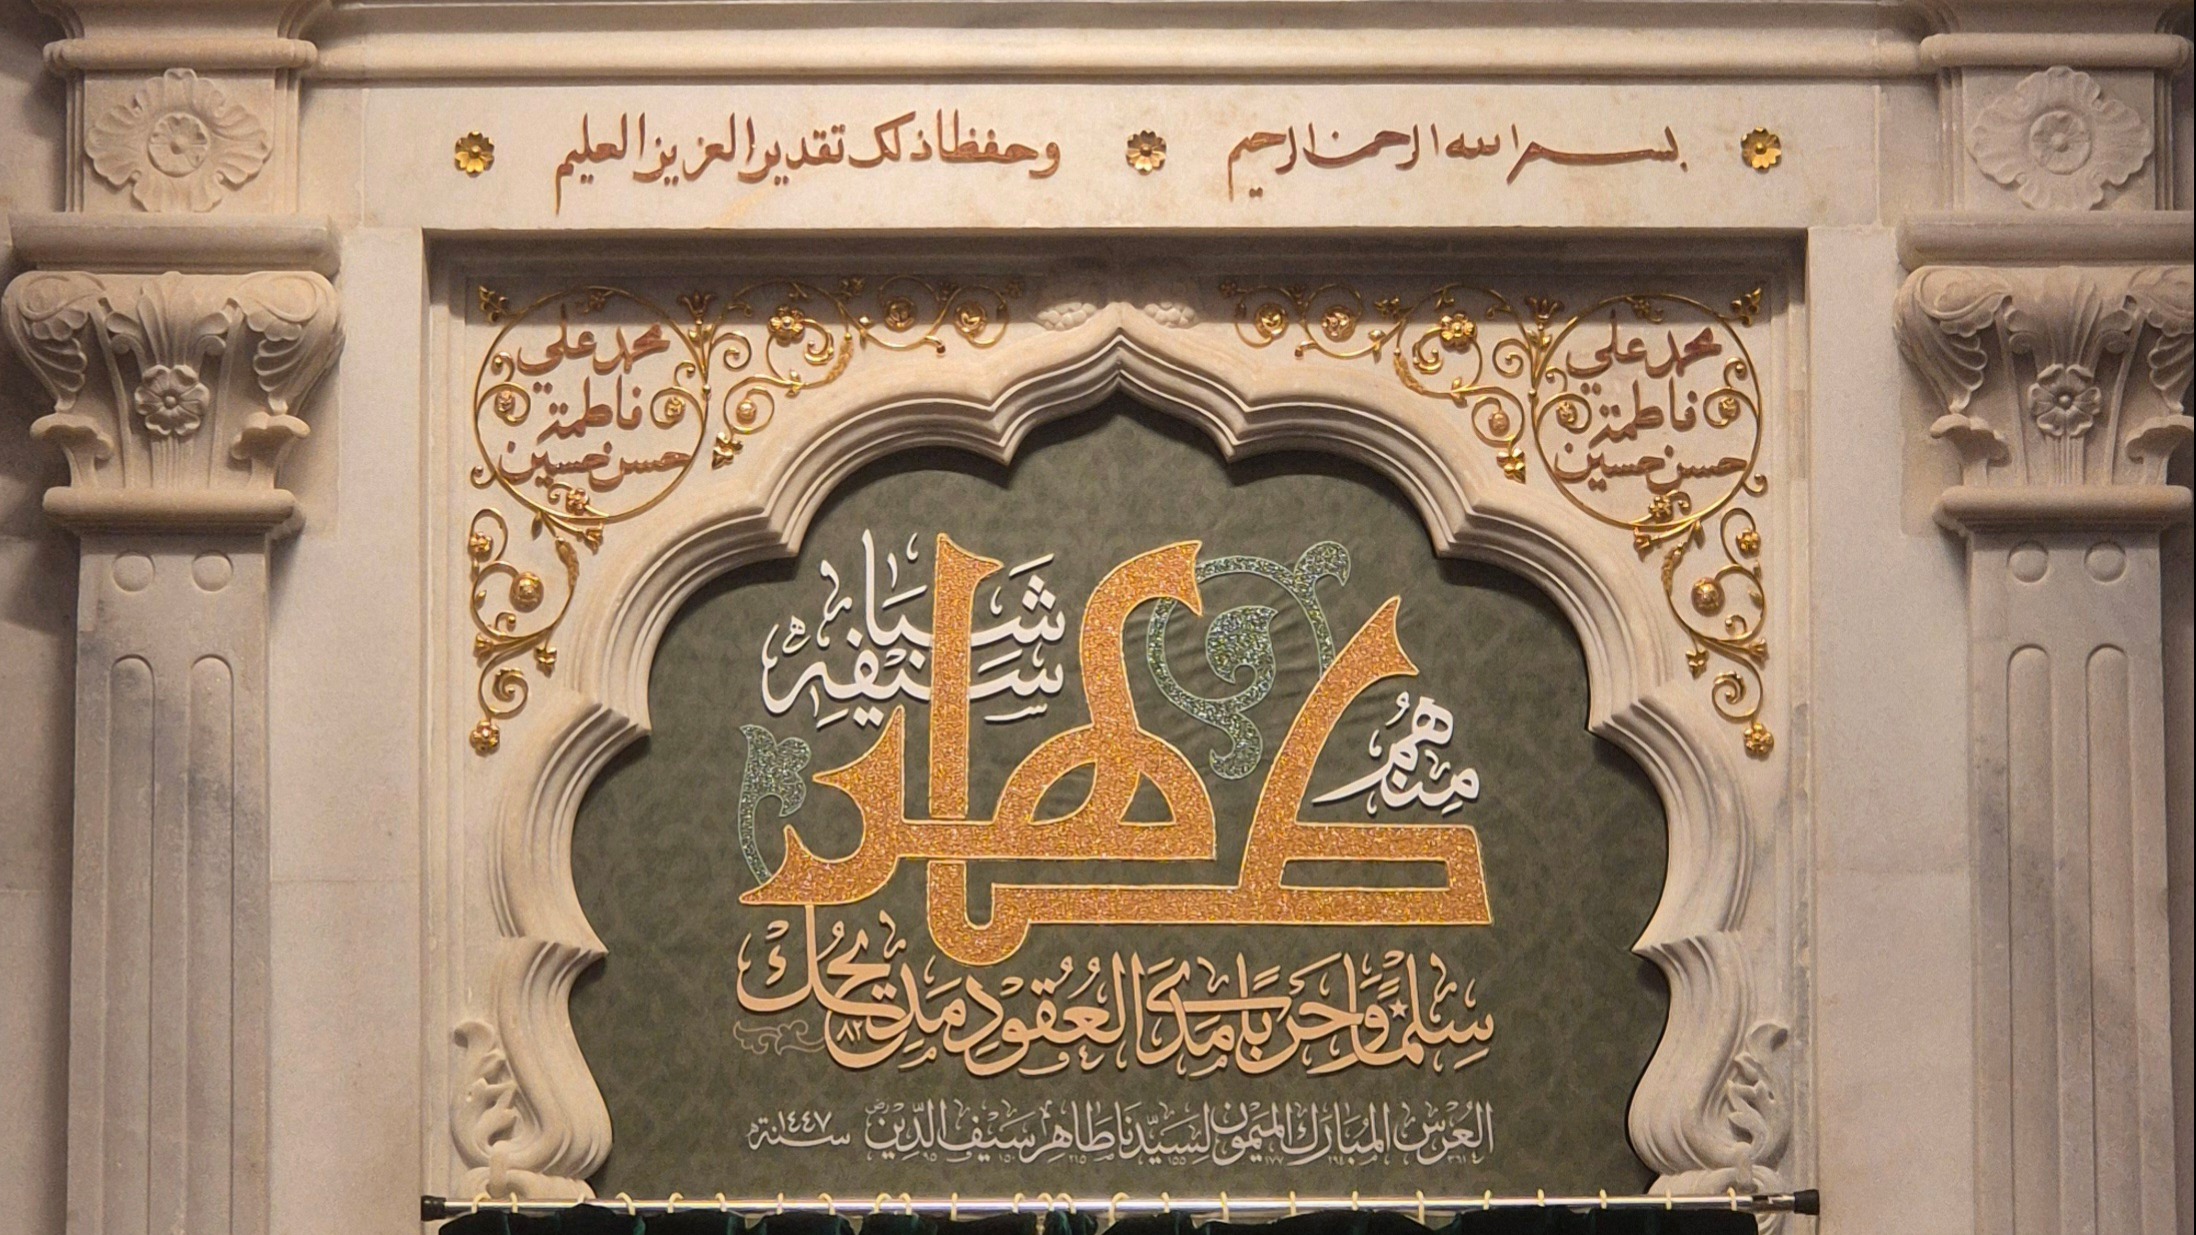 بسم الله الرحمن الرحيم
وحفظا ذلك تقدير العزيز العليم
محمد علي
فاطمة
حسن حسين
محمد علي
فاطمة
حسن حسين
مِنهُم طاهر شَبا سَيْفِهِ
سِلْمًا وَّحَرْبًا مَدَى العُقُودِ مَدِيْحُكْ
العُرْسُ المُبَارَكُ المَيْمُونُ لِسَيِّدِنَا طَاهِر سَيْفِ الدِّيْن رض سنة ١٤٤٧هـ